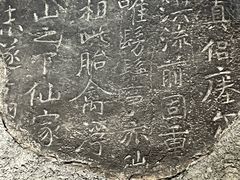 真侣瘗尔
洪流前固重
唯髣髴事亦
相此胎禽浮
山之下仙家
遂吾